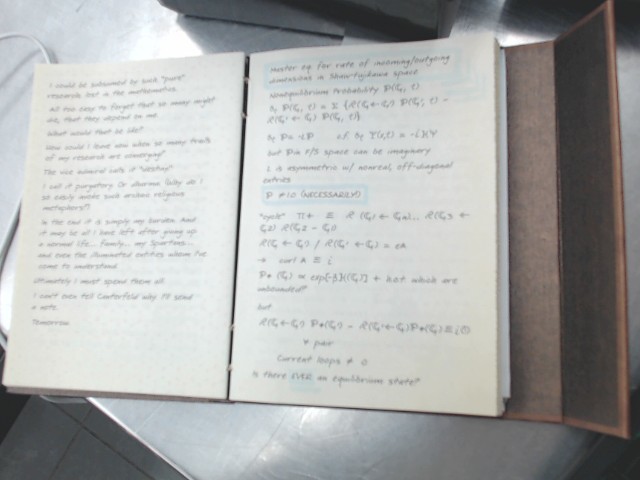 I could be subsumed by such "pure"
research, lost in the mathematics.
All too easy to forget that so many might
die, that they depend on me.
What would that be like?
How could I leave now when so many trails
of my research are converging?
The vice admiral calls it "destiny."
I call it purgatory. Or dharma. Why do I
so easily make such archaic religious
metaphors?
In the end it is simply my burden. And
it may be all I have left after giving up
a normal life... family... my Spartans...
and even the illuminated entities whom I've
come to understand.
Ultimately I must spend them all.
I can't even tell why. I'll send
a note.
Tomorrow.
Master eq. for rate of incoming/outgoing
dimensions in Shaw-Fujikawa space
Nonequilibrium Probability P(ζ, t)
P(ζ, t) = Σ {R(ζ ← ζ') P(ζ', t) -
R(ζ' ← ζ) P(ζ, t)}
but P in F/S space can be imaginary
L is asymmetric w/ nonreal, off-diagonal
entries
P ≠ 10 (NECESSARILY)
"cycle"
→ curl A ≡ i
+ hot which are
unbounded?
but
∀ pair
Current loops ≠ 0
Is there EVER an equilibrium state?